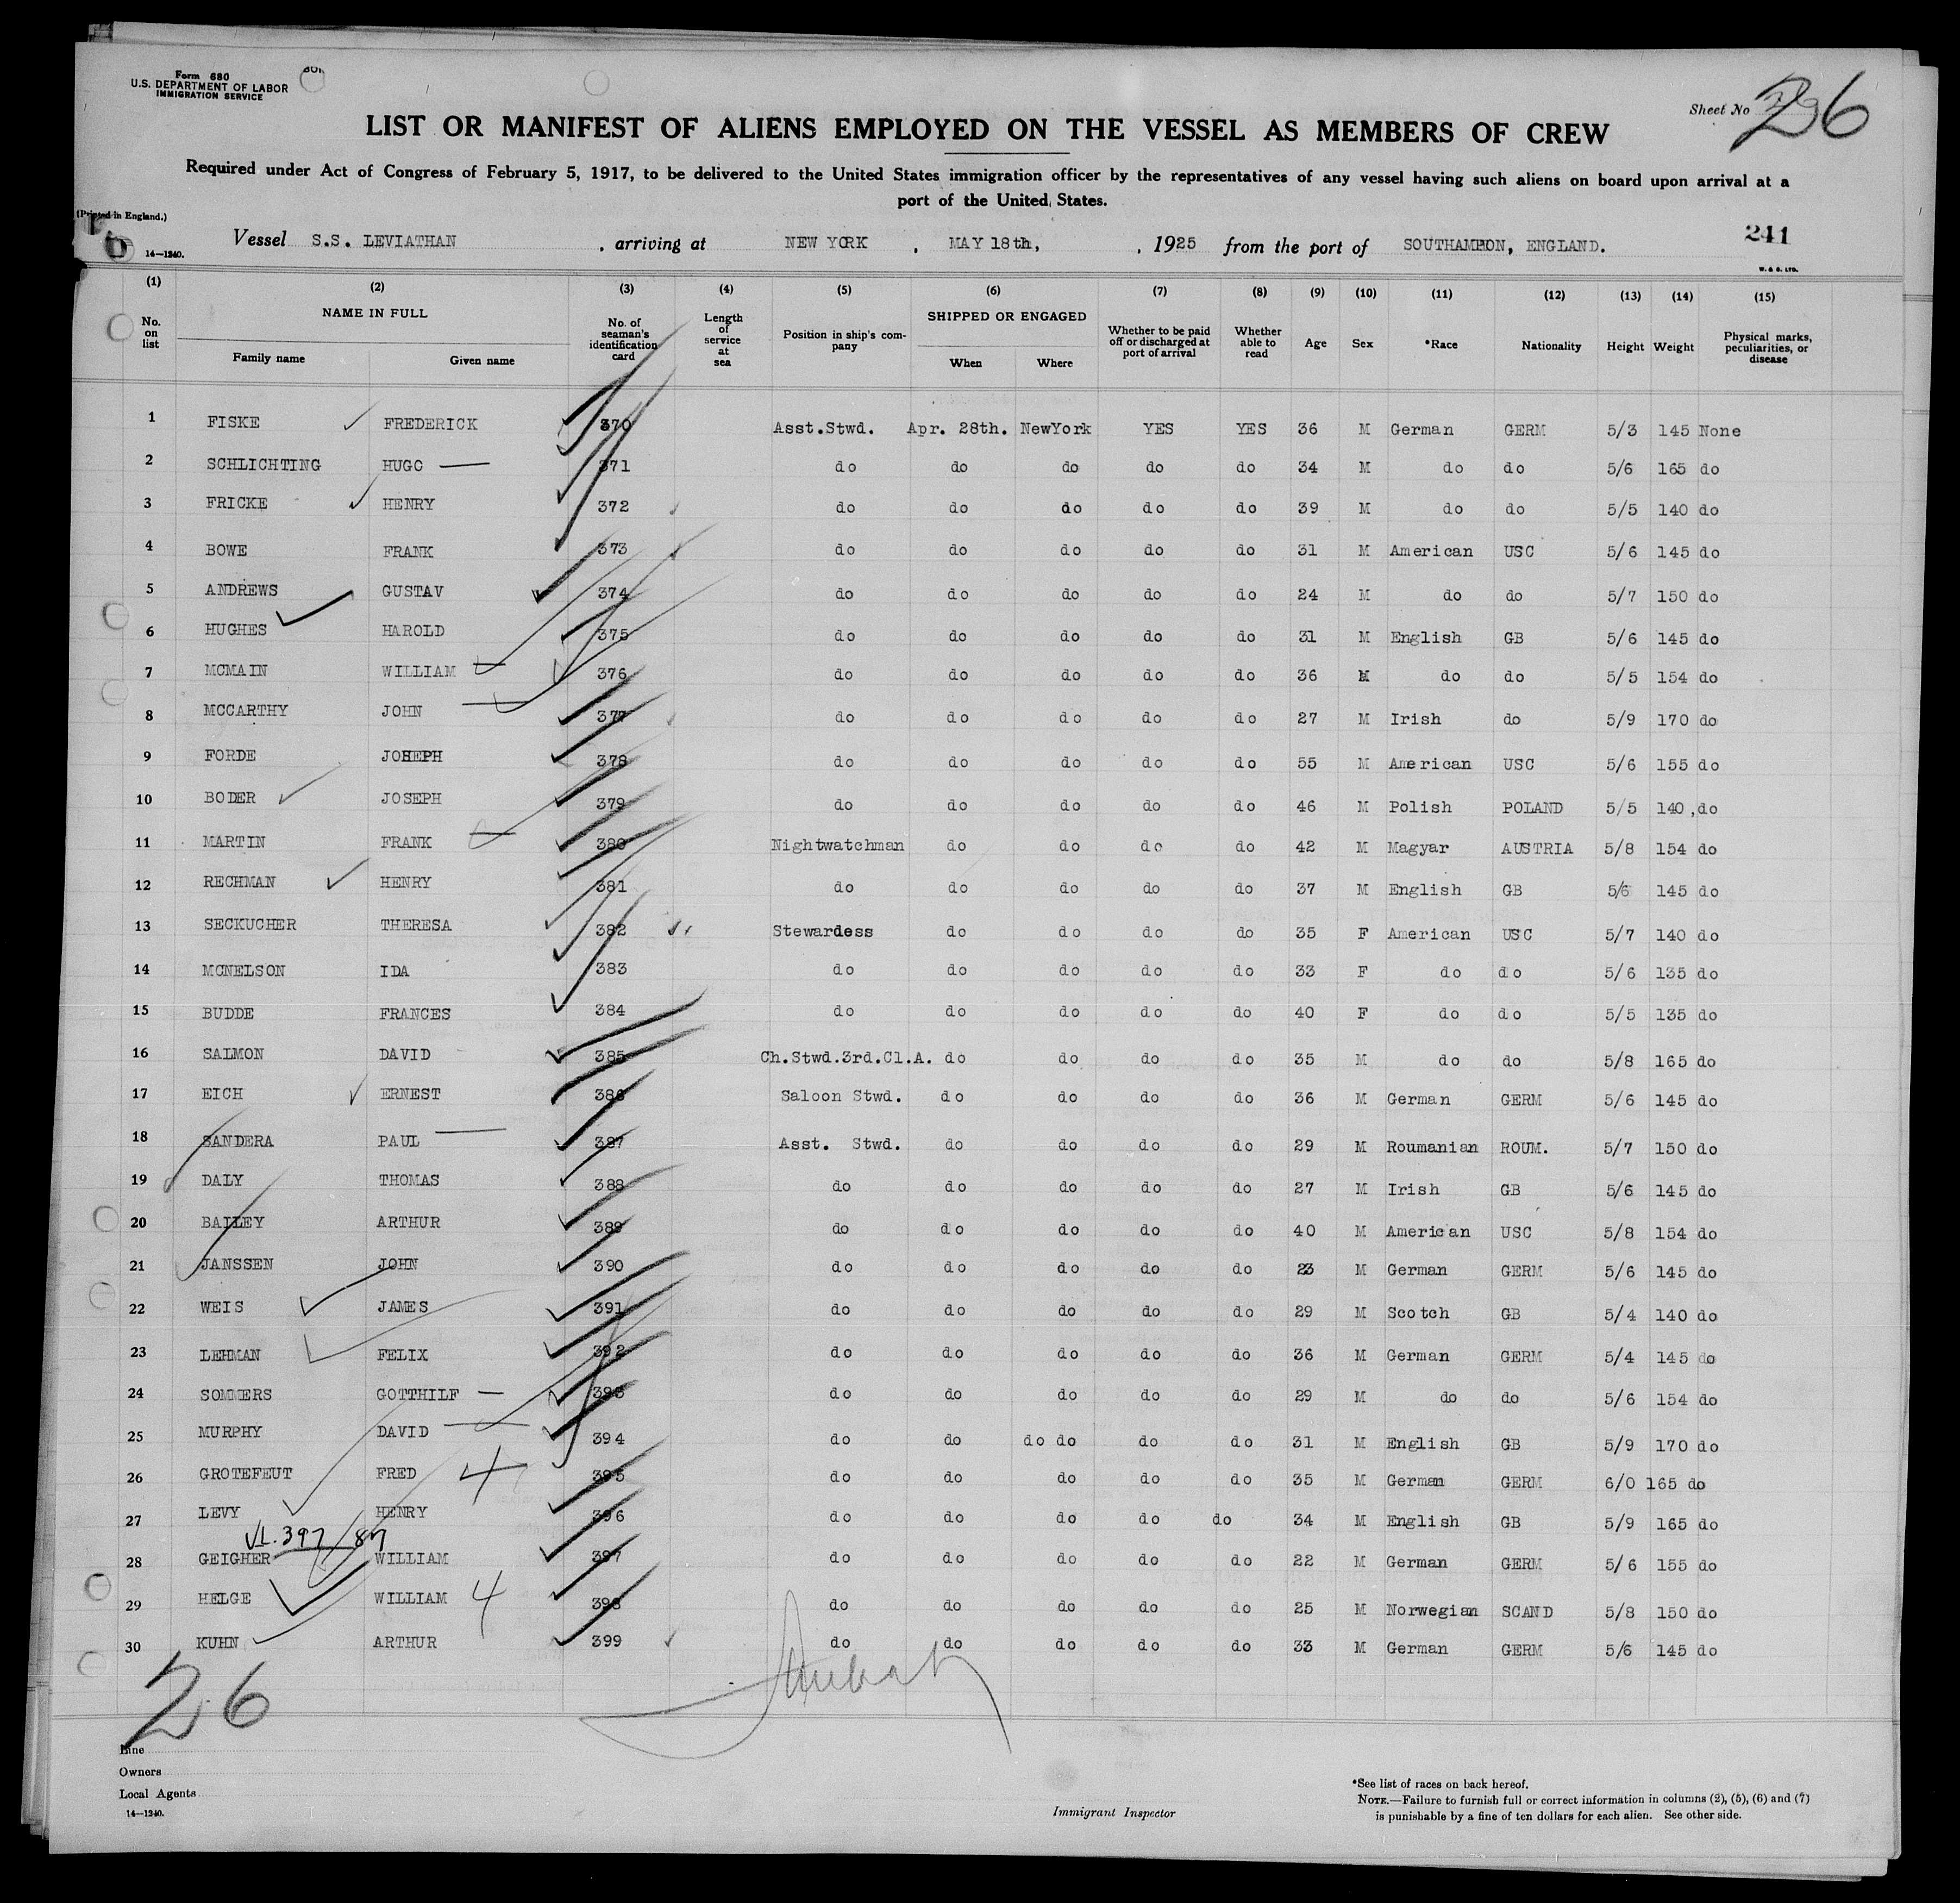 Form 680
U.S. DEPARTMENT OF LABOR
IMMIGRATION SERVICE
Sheet No 26
LIST OR MANIFEST OF ALIENS EMPLOYED ON THE VESSEL AS MEMBERS OF CREW
Required under Act of Congress of February 5, 1917, to be delivered to the United States immigration officer by the representatives of any vessel having such aliens on board upon arrival at a
port of the United States.
(Printed in England.)
14—1240.
Vessel S.S. LEVIATHAN , arriving at NEW YORK , MAY 18th, , 1925 from the port of SOUTHAMPTON, ENGLAND.
241
W. & S. LTD.
(1) (2) (3) (4) (5) (6) (7) (8) (9) (10) (11) (12) (13) (14) (15)
No. on list NAME IN FULL Family name Given name No. of seaman's identification card Length of service at sea Position in ship's company SHIPPED OR ENGAGED When Where Whether to be paid off or discharged at port of arrival Whether able to read Age Sex *Race Nationality Height Weight Physical marks, peculiarities, or disease
1 FISKE FREDERICK 370 Asst.Stwd. Apr. 28th. NewYork YES YES 36 M German GERM 5/3 145 None
2 SCHLICHTING HUGO 371 do do do do do 34 M do do 5/6 165 do
3 FRICKE HENRY 372 do do do do do 39 M do do 5/5 140 do
4 BOWE FRANK 373 do do do do do 31 M American USC 5/6 145 do
5 ANDREWS GUSTAV 374 do do do do do 24 M do do 5/7 150 do
6 HUGHES HAROLD 375 do do do do do 31 M English GB 5/6 145 do
7 MCMAIN WILLIAM 376 do do do do do 36 M do do 5/5 154 do
8 MCCARTHY JOHN 377 do do do do do 27 M Irish do 5/9 170 do
9 FORDE JOSEPH 378 do do do do do 55 M American USC 5/6 155 do
10 BODER JOSEPH 379 do do do do do 46 M Polish POLAND 5/5 140 do
11 MARTIN FRANK 380 Nightwatchman do do do do 42 M Magyar AUSTRIA 5/8 154 do
12 RECHMAN HENRY 381 do do do do do 37 M English GB 5/6 145 do
13 SECKUCHER THERESA 382 Stewardess do do do do 35 F American USC 5/7 140 do
14 MCNELSON IDA 383 do do do do do 33 F do do 5/6 135 do
15 BUDDE FRANCES 384 do do do do do 40 F do do 5/5 135 do
16 SALMON DAVID 385 Ch.Stwd.3rd.Cl.A. do do do do 35 M do do 5/8 165 do
17 EICH ERNEST 386 Saloon Stwd. do do do do 36 M German GERM 5/6 145 do
18 SANDERA PAUL 387 Asst. Stwd. do do do do 29 M Roumanian ROUM. 5/7 150 do
19 DALY THOMAS 388 do do do do do 27 M Irish GB 5/6 145 do
20 BAILEY ARTHUR 389 do do do do do 40 M American USC 5/8 154 do
21 JANSSEN JOHN 390 do do do do do 23 M German GERM 5/6 145 do
22 WEIS JAMES 391 do do do do do 29 M Scotch GB 5/4 140 do
23 LEHMAN FELIX 392 do do do do do 36 M German GERM 5/4 145 do
24 SOMMERS GOTTHILF 393 do do do do do 29 M do do 5/6 154 do
25 MURPHY DAVID 394 do do do do do do 31 M English GB 5/9 170 do
26 GROTEFEUT FRED 4 395 do do do do do 35 M German GERM 6/0 165 do
27 LEVY HENRY 396 do do do do do 34 M English GB 5/9 165 do
VL. 397/87
28 GEIGHER WILLIAM 397 do do do do do 22 M German GERM 5/6 155 do
29 HELGE WILLIAM 4 398 do do do do do 25 M Norwegian SCAND 5/8 150 do
30 KUHN ARTHUR 399 do do do do do 33 M German GERM 5/6 145 do
26
Line
Owners
Local Agents
14—1240.
Immigrant Inspector
*See list of races on back hereof.
NOTE.—Failure to furnish full or correct information in columns (2), (5), (6) and (7)
is punishable by a fine of ten dollars for each alien. See other side.